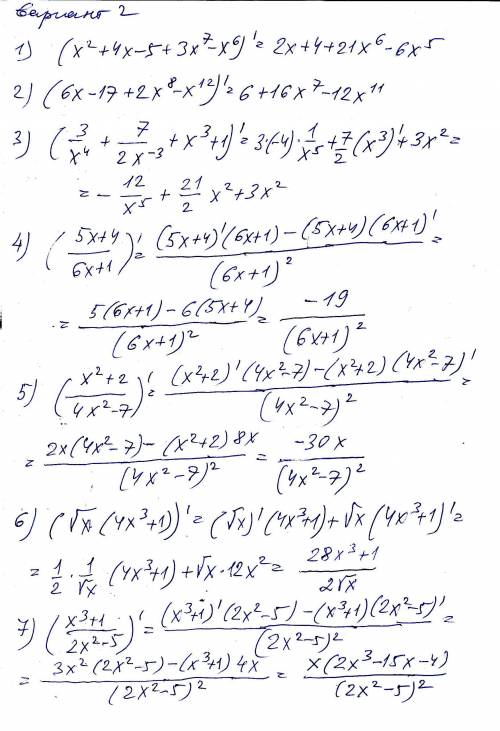 Вариант 2
1) (x²+4x-5+3x⁷-x⁶)' = 2x+4+21x⁶-6x⁵
2) (6x-17+2x⁸-x¹²)' = 6+16x⁷-12x¹¹
3) (3/x⁴ + 7/2x⁻³ + x³+1)' = 3·(-4)·1/x⁵ + 7/2 (x³)' + 3x² =
= - 12/x⁵ + 21/2 x² + 3x²
4) ((5x+4)/(6x+1))' = ((5x+4)'(6x+1) - (5x+4)(6x+1)')/(6x+1)² =
= (5(6x+1) - 6(5x+4))/(6x+1)² = -19/(6x+1)²
5) ((x²+2)/(4x²-7))' = ((x²+2)'(4x²-7) - (x²+2)(4x²-7)')/(4x²-7)² =
= (2x(4x²-7) - (x²+2)8x)/(4x²-7)² = -30x/(4x²-7)²
6) (√x·(4x³+1))' = (√x)'(4x³+1) + √x(4x³+1)' =
= 1/2 · 1/√x (4x³+1) + √x·12x² = (28x³+1)/2√x
7) ((x³+1)/(2x²-5))' = ((x³+1)'(2x²-5) - (x³+1)(2x²-5)')/(2x²-5)² =
= (3x²(2x²-5) - (x³+1)4x)/(2x²-5)² = x(2x³-15x-4)/(2x²-5)²